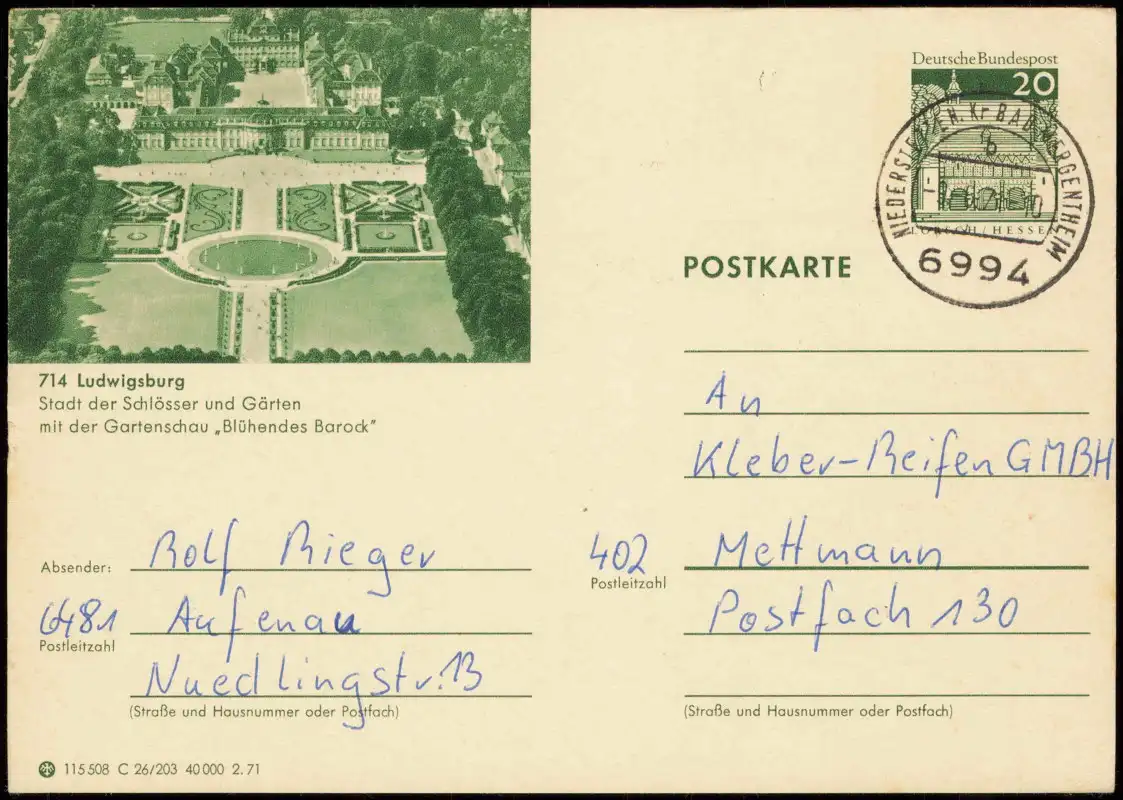 Deutsche Bundespost
20
LORSCH / HESSEN
6994
POSTKARTE
714 Ludwigsburg
Stadt der Schlösser und Gärten
mit der Gartenschau „Blühendes Barock"
An
Kleber-Reifen GMBH
402 Mettmann
Postleitzahl
Postfach 130
(Straße und Hausnummer oder Postfach)
Absender: Rolf Rieger
6481 Aufenau
Postleitzahl
Nuedlingstr. 13
(Straße und Hausnummer oder Postfach)
115 508 C 26/203 40 000 2.71